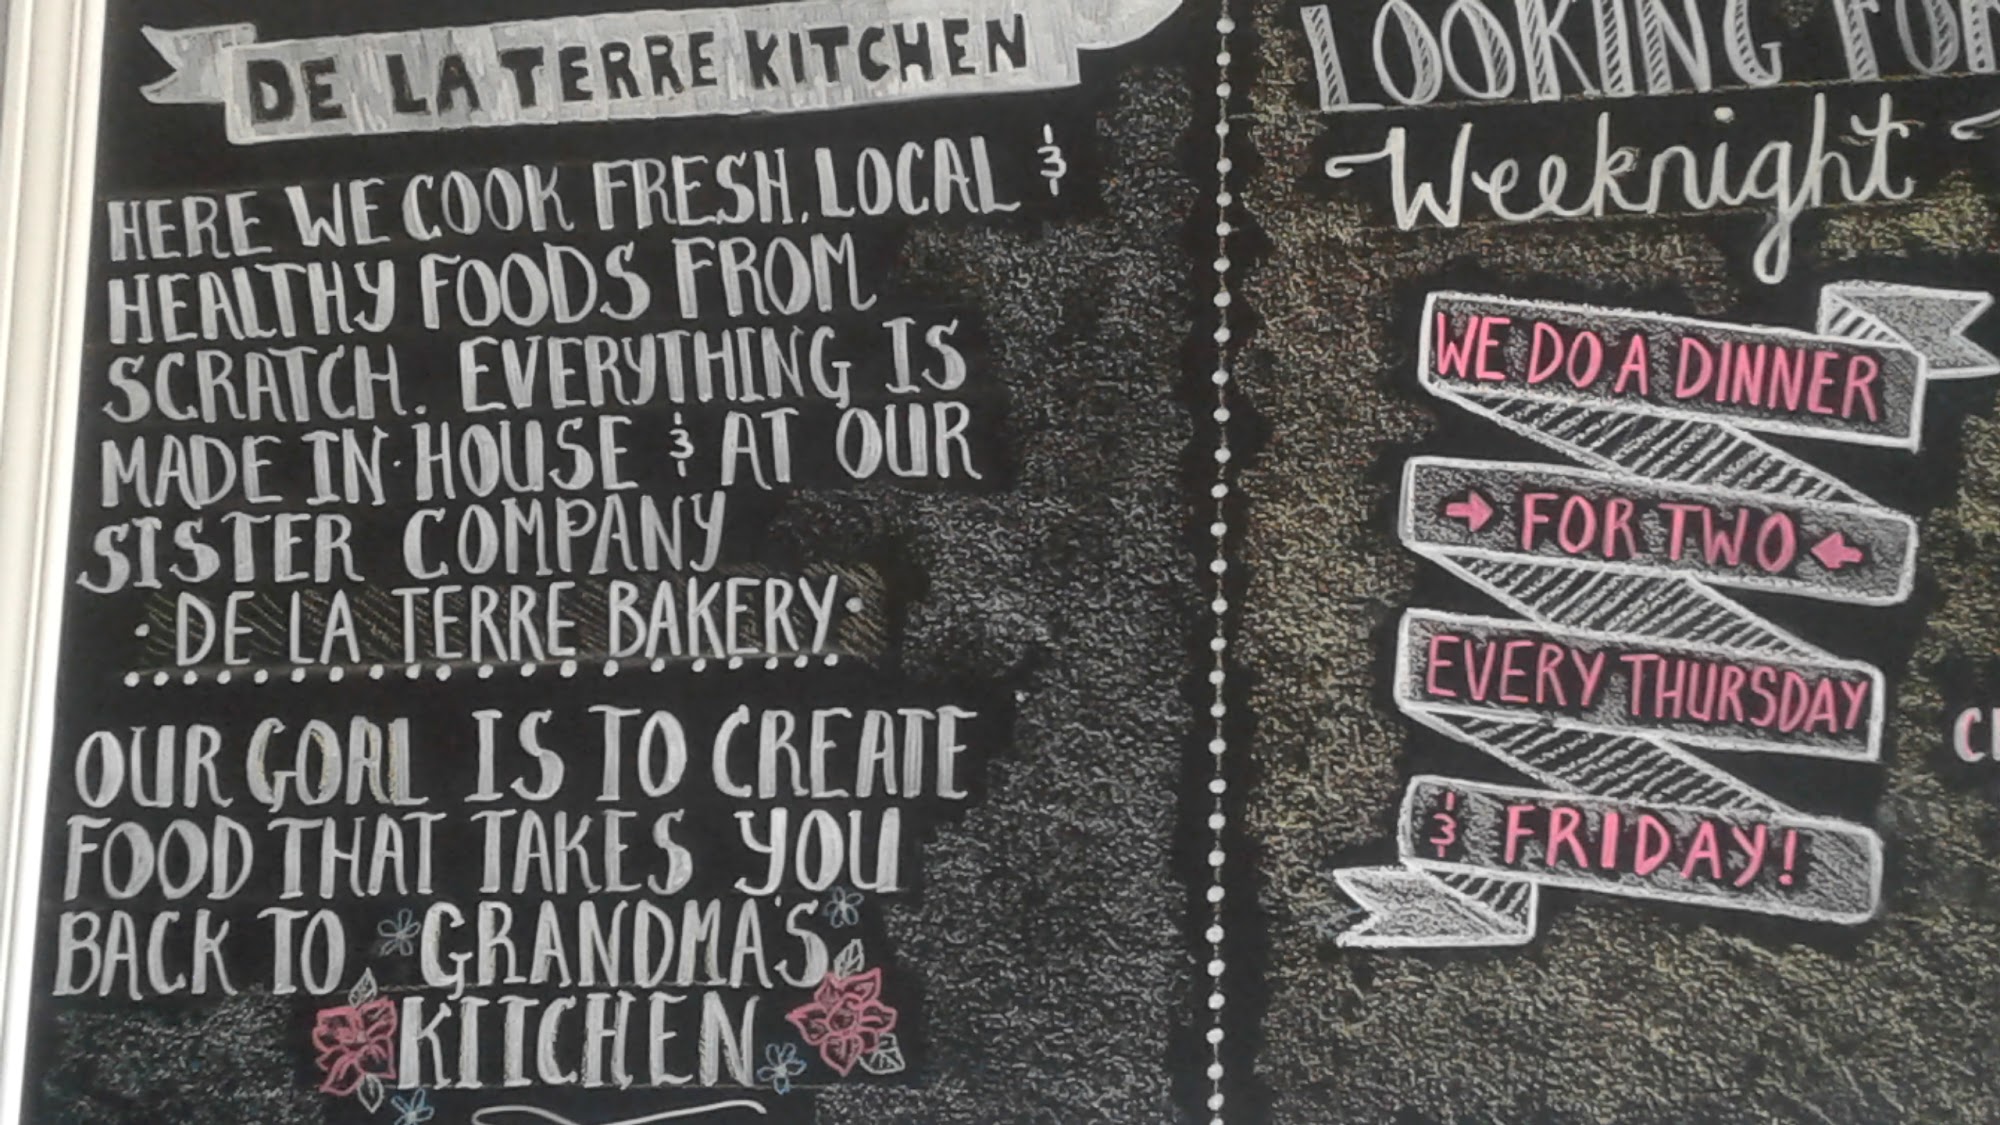 DE LA TERRE KITCHEN
HERE WE COOK FRESH, LOCAL &
HEALTHY FOODS FROM
SCRATCH. EVERYTHING IS
MADE IN·HOUSE & AT OUR
SISTER COMPANY
·DE LA TERRE BAKERY·
OUR GOAL IS TO CREATE
FOOD THAT TAKES YOU
BACK TO GRANDMA'S
KITCHEN
LOOKING FOR
Weeknight
WE DO A DINNER
→ FOR TWO ←
EVERY THURSDAY
& FRIDAY!